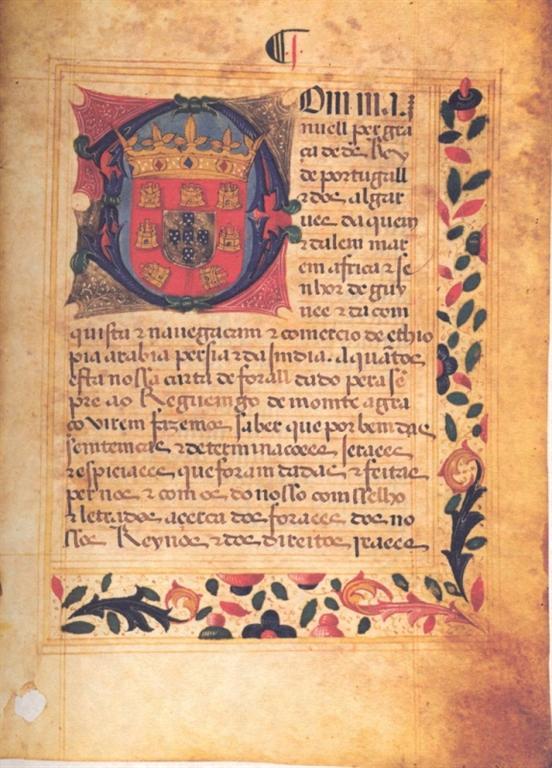 C j
Dom ma
nuell per gra
ça de ds Rey
de portugall
z dos algar
ues da quem
z dalem mar
em africa z se
nhor de guy
nee z da com
quista z nauegacam z comercio de ethio
pia arabia persia z da india. A quãtos
esta nossa carta de forall dado pera sẽ
pre ao Regueingo de momte agra
ço virem fazemos saber que por bem das
semtemças z determinações jeraees
z espiciaees que foram dadas z feitas
per nos z com os do nosso comsselho
z letrados açerca dos foraees dos no
ssos Reynos z dos direitos rraees